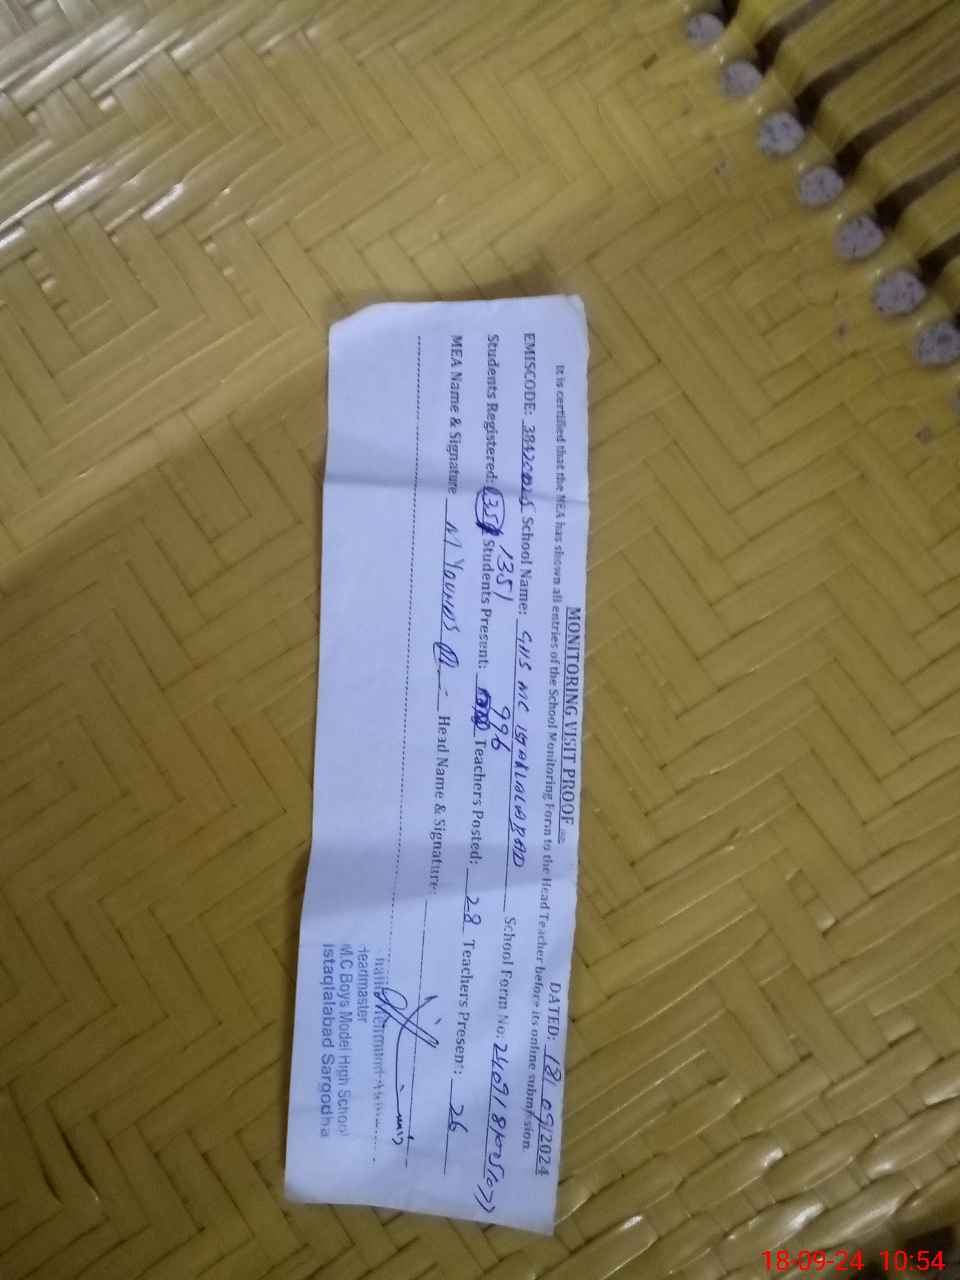 MONITORING VISIT PROOF
DATED: 18/09/2024
It is certified that the MEA has shown all entries of the School Monitoring Form to the Head Teacher before its online submission
EMISCODE: School Name: GHS MC School Form No:
1351 996
Students Registered: Students Present: Teachers Posted: 28 Teachers Present: 26
MEA Name & Signature M YOUNAS Head Name & Signature:
Headmaster
M.C Boys Model High School
Istaqlalabad Sargodha
18-09-24 10:54